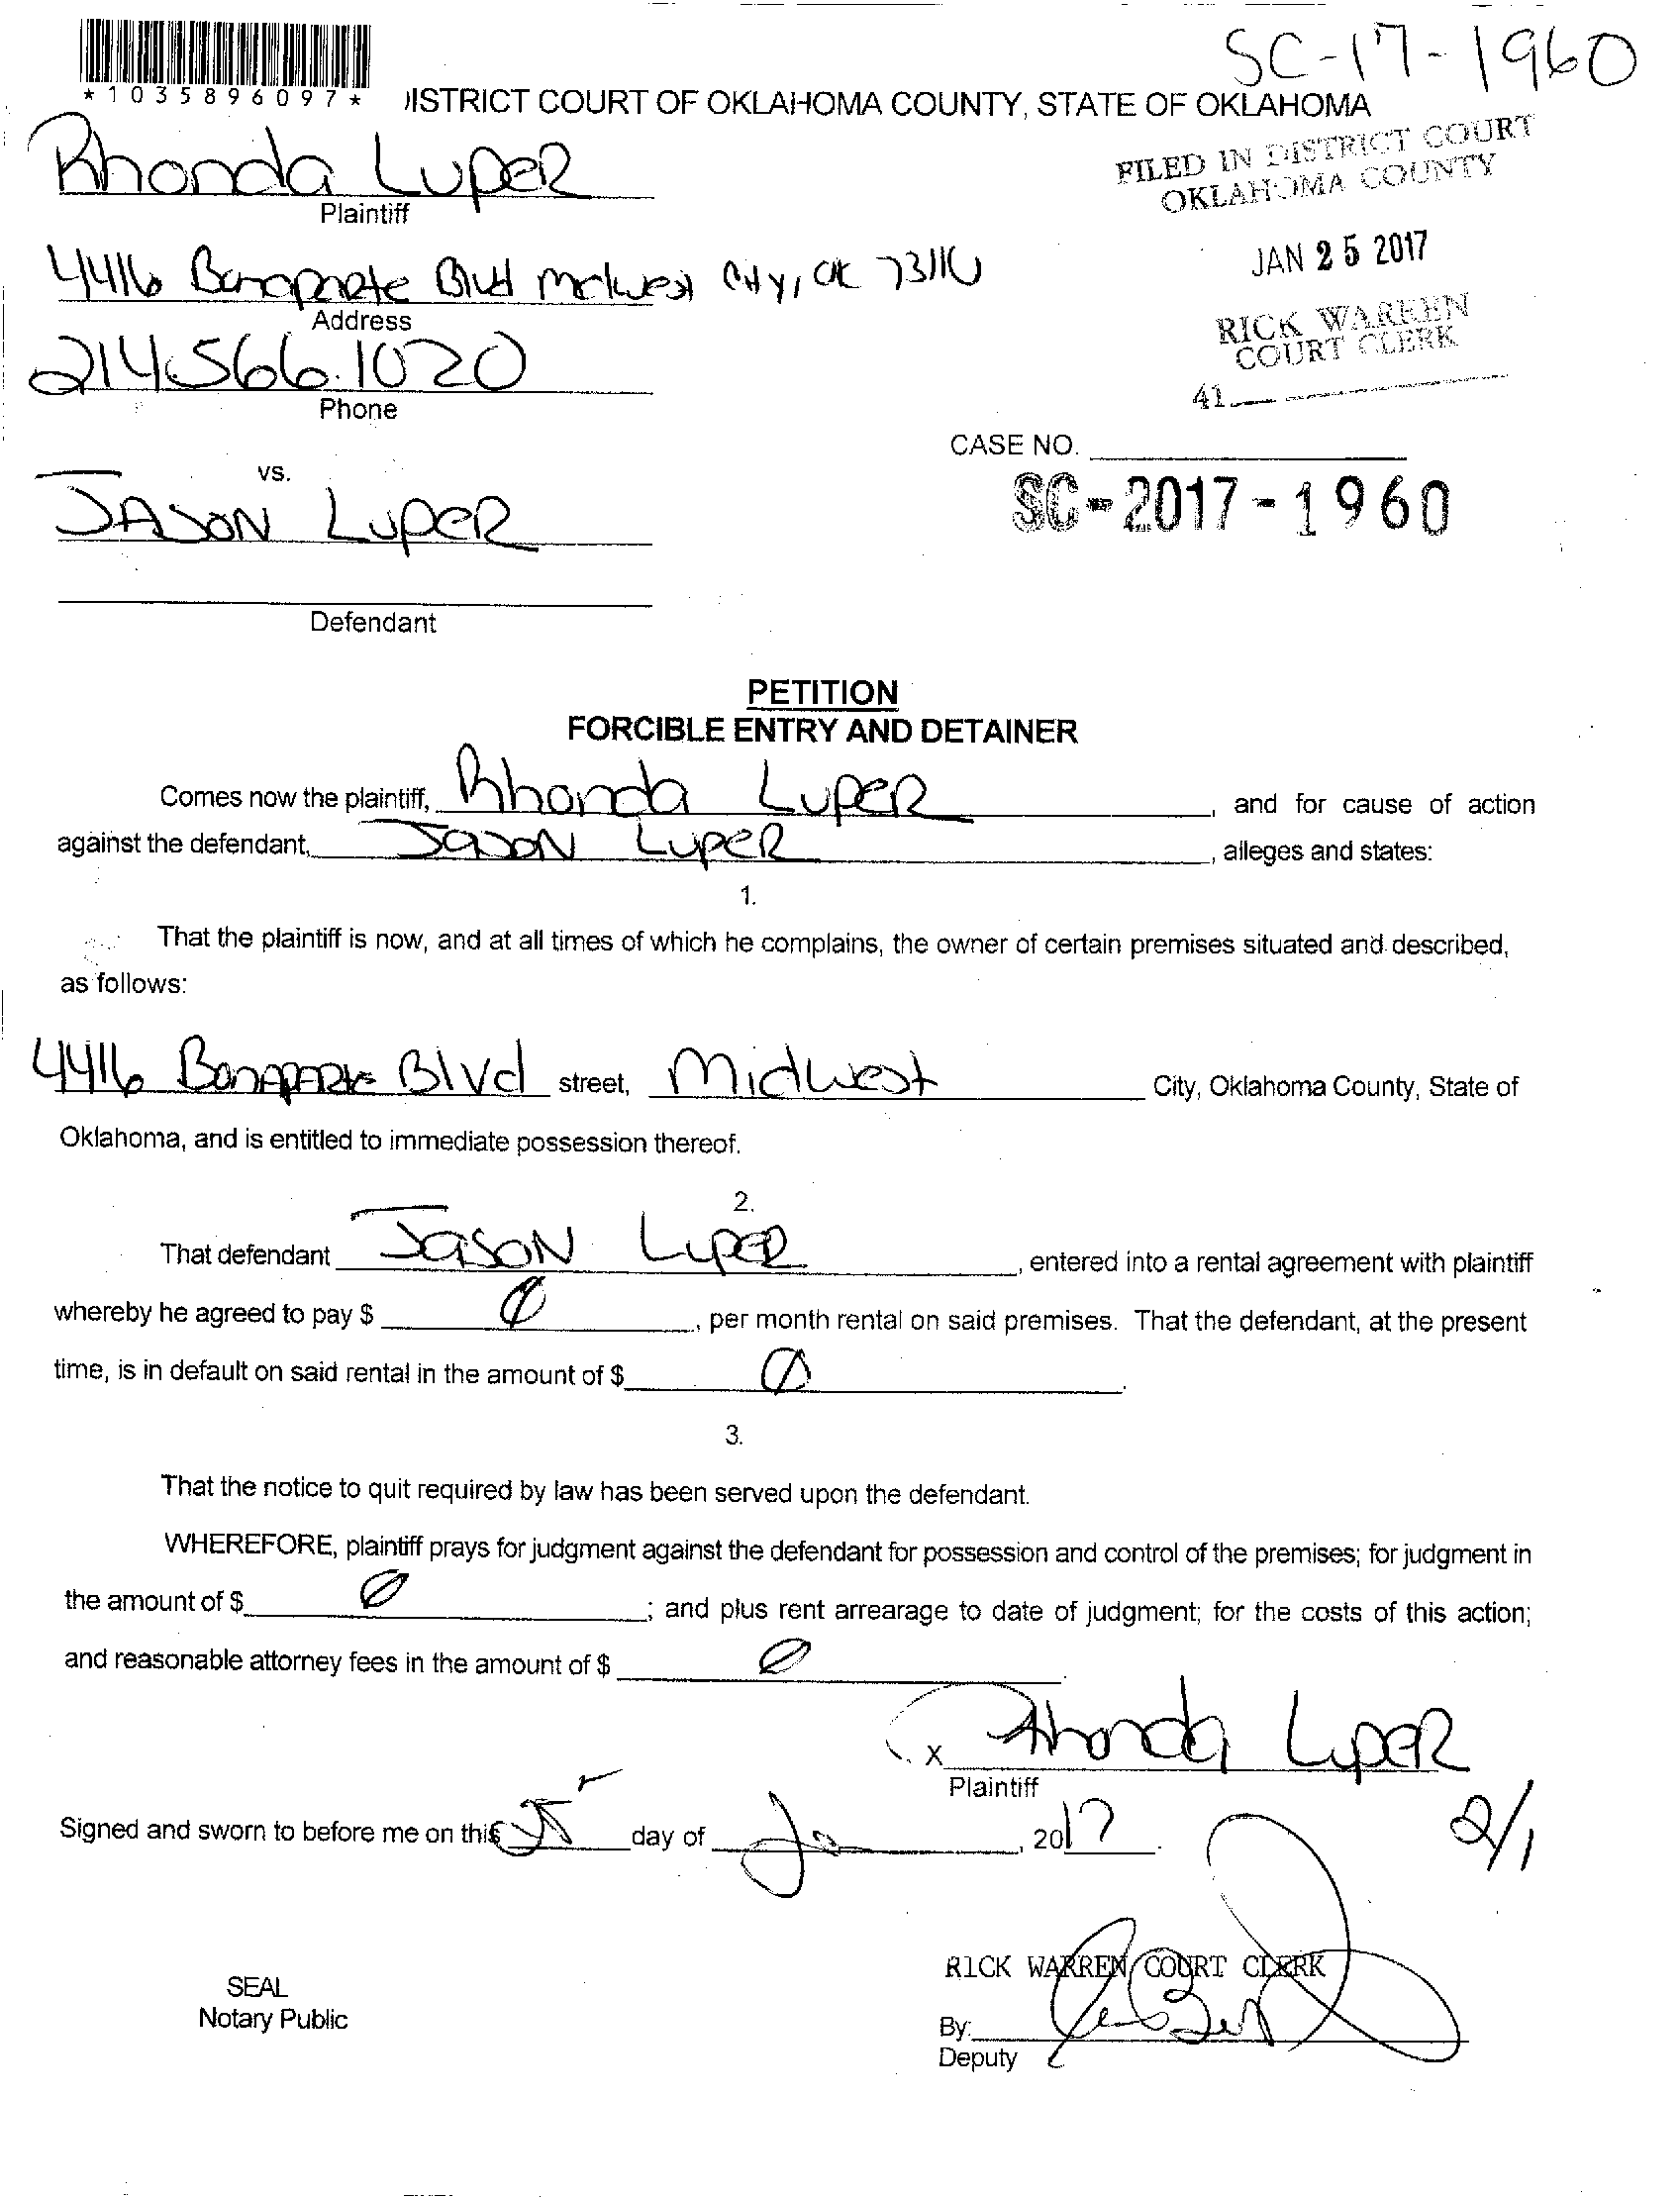 SC-17-1960
*1035896097*
DISTRICT COURT OF OKLAHOMA COUNTY, STATE OF OKLAHOMA
FILED IN DISTRICT COURT
OKLAHOMA COUNTY
Rhonda Luper
Plaintiff
JAN 25 2017
4416 Bonaparte Blvd Midwest City, OK 73110
Address
RICK WARREN
COURT CLERK
214.566.1020
Phone
41
CASE NO.
vs.
SC-2017-1960
JASON LUPER
Defendant
PETITION
FORCIBLE ENTRY AND DETAINER
Comes now the plaintiff, Rhonda Luper, and for cause of action
against the defendant, Jason Luper, alleges and states:
1.
That the plaintiff is now, and at all times of which he complains, the owner of certain premises situated and described,
as follows:
4416 Bonaparte Blvd street, Midwest City, Oklahoma County, State of
Oklahoma, and is entitled to immediate possession thereof.
2.
That defendant Jason Luper, entered into a rental agreement with plaintiff
whereby he agreed to pay $ 0, per month rental on said premises. That the defendant, at the present
time, is in default on said rental in the amount of $ 0.
3.
That the notice to quit required by law has been served upon the defendant.
WHEREFORE, plaintiff prays for judgment against the defendant for possession and control of the premises; for judgment in
the amount of $ 0; and plus rent arrearage to date of judgment; for the costs of this action;
and reasonable attorney fees in the amount of $ 0
x Rhonda Luper
Plaintiff
2/1
Signed and sworn to before me on this 25 day of Ja, 2017.
RICK WARREN COURT CLERK
SEAL
Notary Public
By:
Deputy